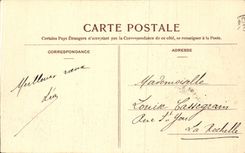 CARTE POSTALE
Certains Pays étrangers n'acceptant pas la Correspondance de ce côté, se renseigner à la Poste
CORRESPONDANCE
ADRESSE
Meilleurs
Mademoiselle
Louise Cassegrain
Rue St Yon
La Rochelle